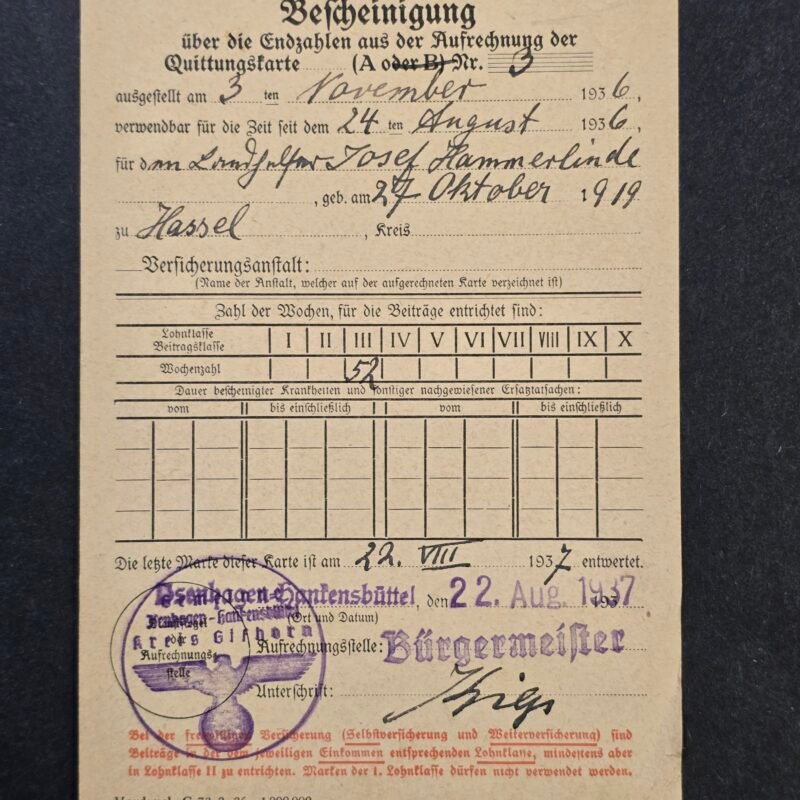 Bescheinigung
über die Endzahlen aus der Aufrechnung der
Quittungskarte (A oder B) Nr. 3
ausgestellt am 3 ten November 1936,
verwendbar für die Zeit seit dem 24 ten August 1936,
für den Landhelfer Josef Hammerlinde
, geb. am 27 Oktober 1919
zu Hassel , Kreis
Versicherungsanstalt:
(Name der Anstalt, welcher auf der aufgerechneten Karte verzeichnet ist)
Zahl der Wochen, für die Beiträge entrichtet sind:
Lohnklasse
Beitragsklasse
I II III IV V VI VII VIII IX X
Wochenzahl 52
Dauer bescheinigter Krankheiten und sonstiger nachgewiesener Ersatztatsachen:
vom bis einschließlich vom bis einschließlich
Die letzte Marke dieser Karte ist am 22. VIII 1937 entwertet.
Isenhagen-Hankensbüttel, den 22. Aug. 1937
193
Isenhagen-Hankensbüttel
(Ort und Datum)
Kreis Gifhorn
der
Aufrechnungs-
stelle
Aufrechnungsstelle: Bürgermeister
Unterschrift:
Bei der freiwilligen Versicherung (Selbstversicherung und Weiterversicherung) sind
Beiträge in der dem jeweiligen Einkommen entsprechenden Lohnklasse, mindestens aber
in Lohnklasse II zu entrichten. Marken der I. Lohnklasse dürfen nicht verwendet werden.